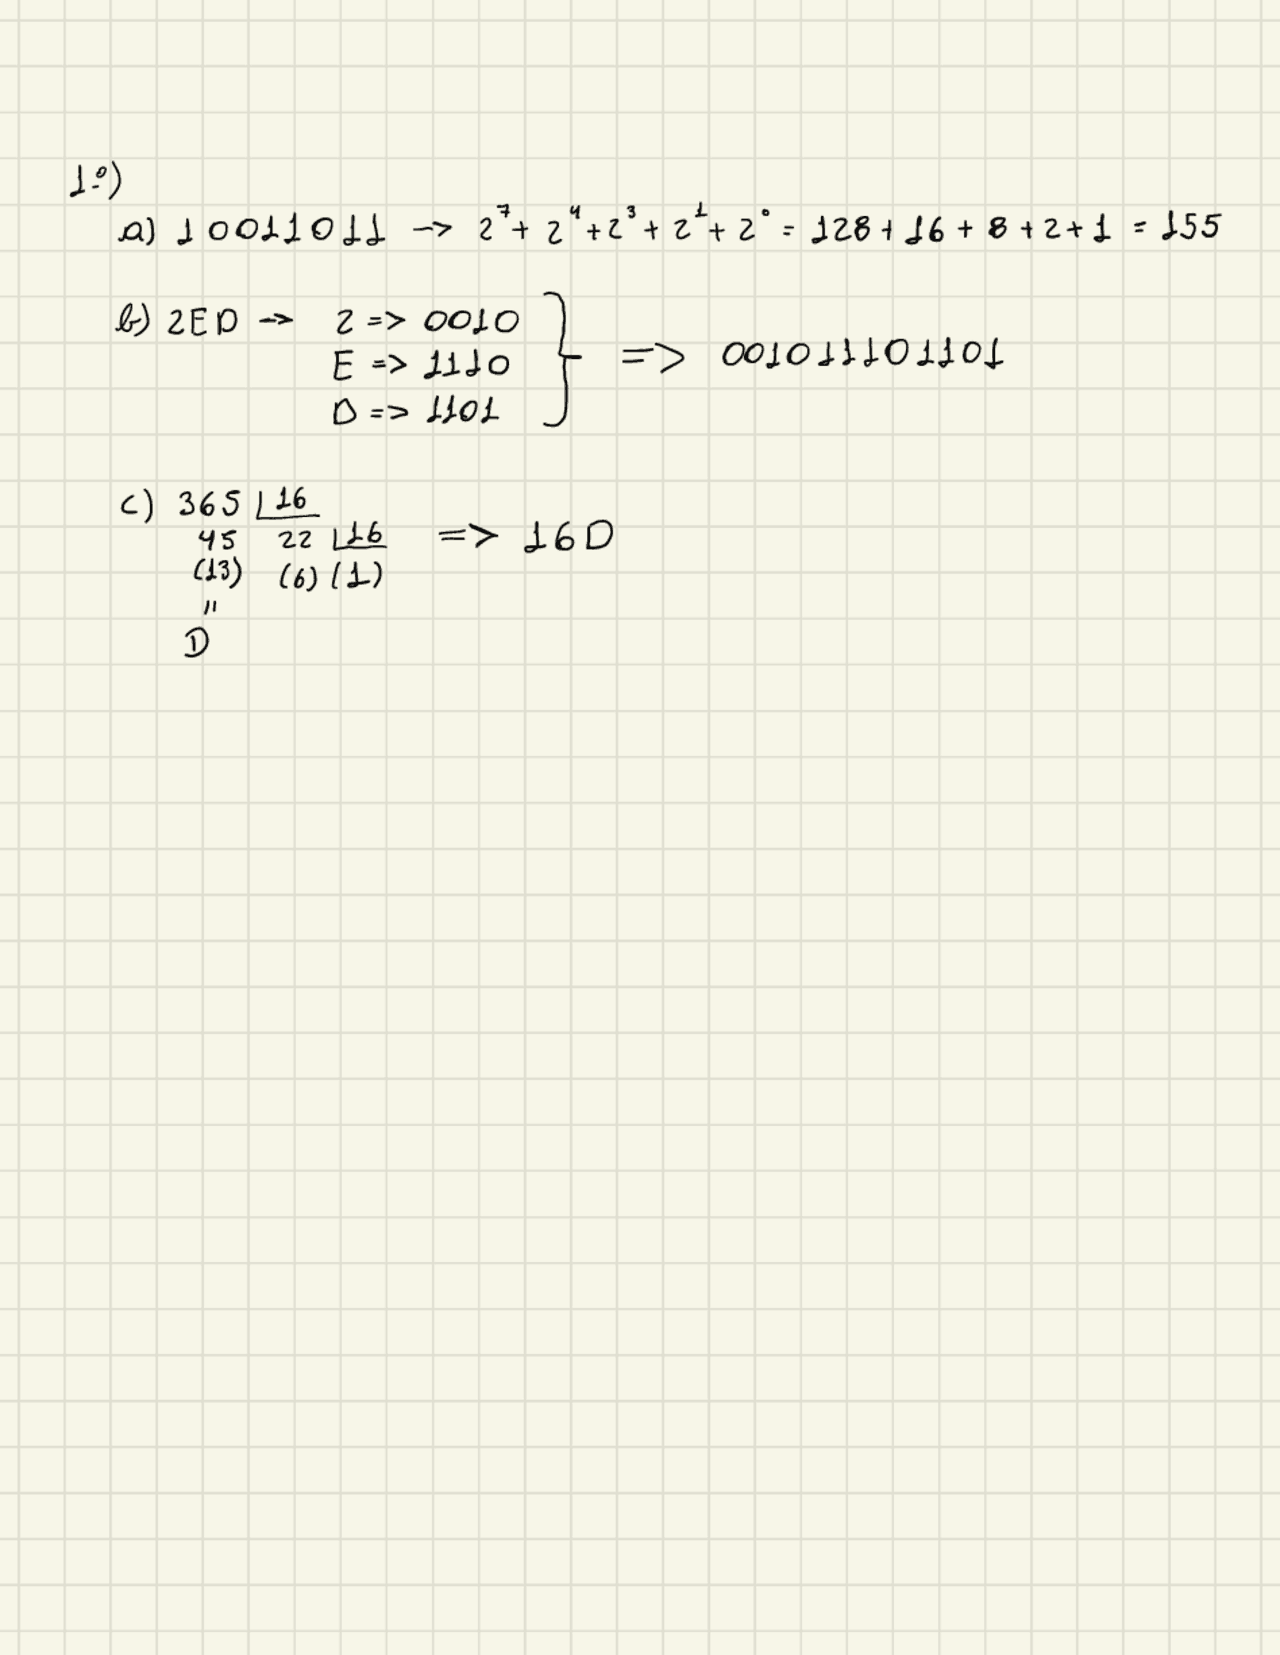 1º)
a) 10011011 -> 2⁷ + 2⁴ + 2³ + 2¹ + 2⁰ = 128 + 16 + 8 + 2 + 1 = 155
b) 2ED -> 2 => 0010
E => 1110 => 001011101101
D => 1101
c) 365 16
45 22 16 => 16D
(13) (6) (1)
"
D